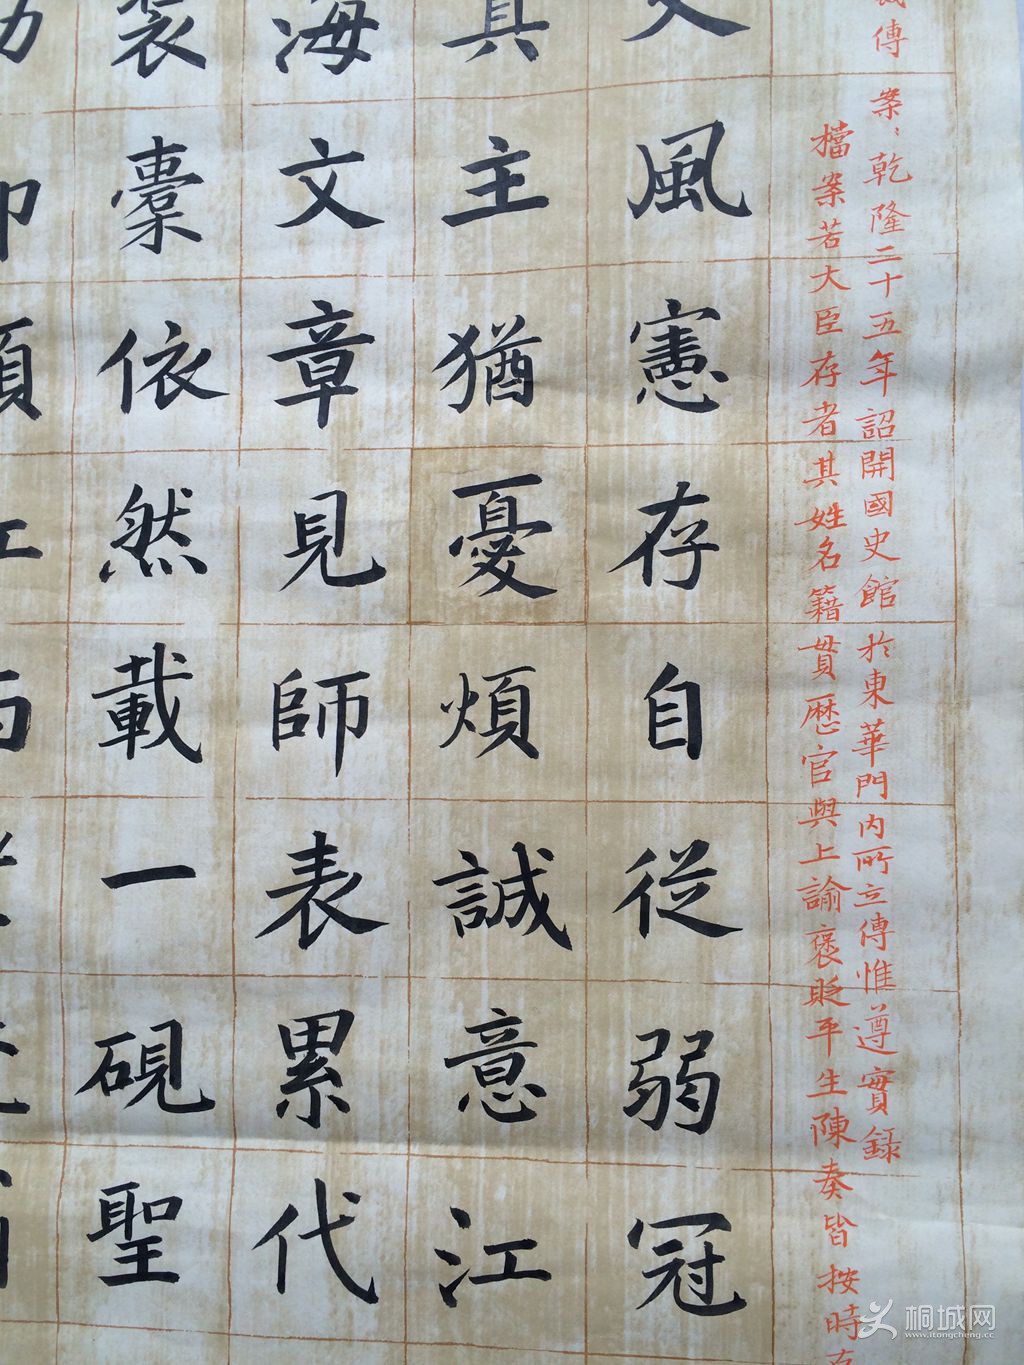 傳案：乾隆二十五年詔開國史館於東華門内所立傳惟遵實錄
檔案若大臣存者其姓名籍貫歷官與上諭褒貶平生陳奏皆按時
風憲存自從弱冠
真主猶憂煩誠意江
海文章見師表累代
裘橐依然載一硯聖
桐城网
www.itongcheng.cc